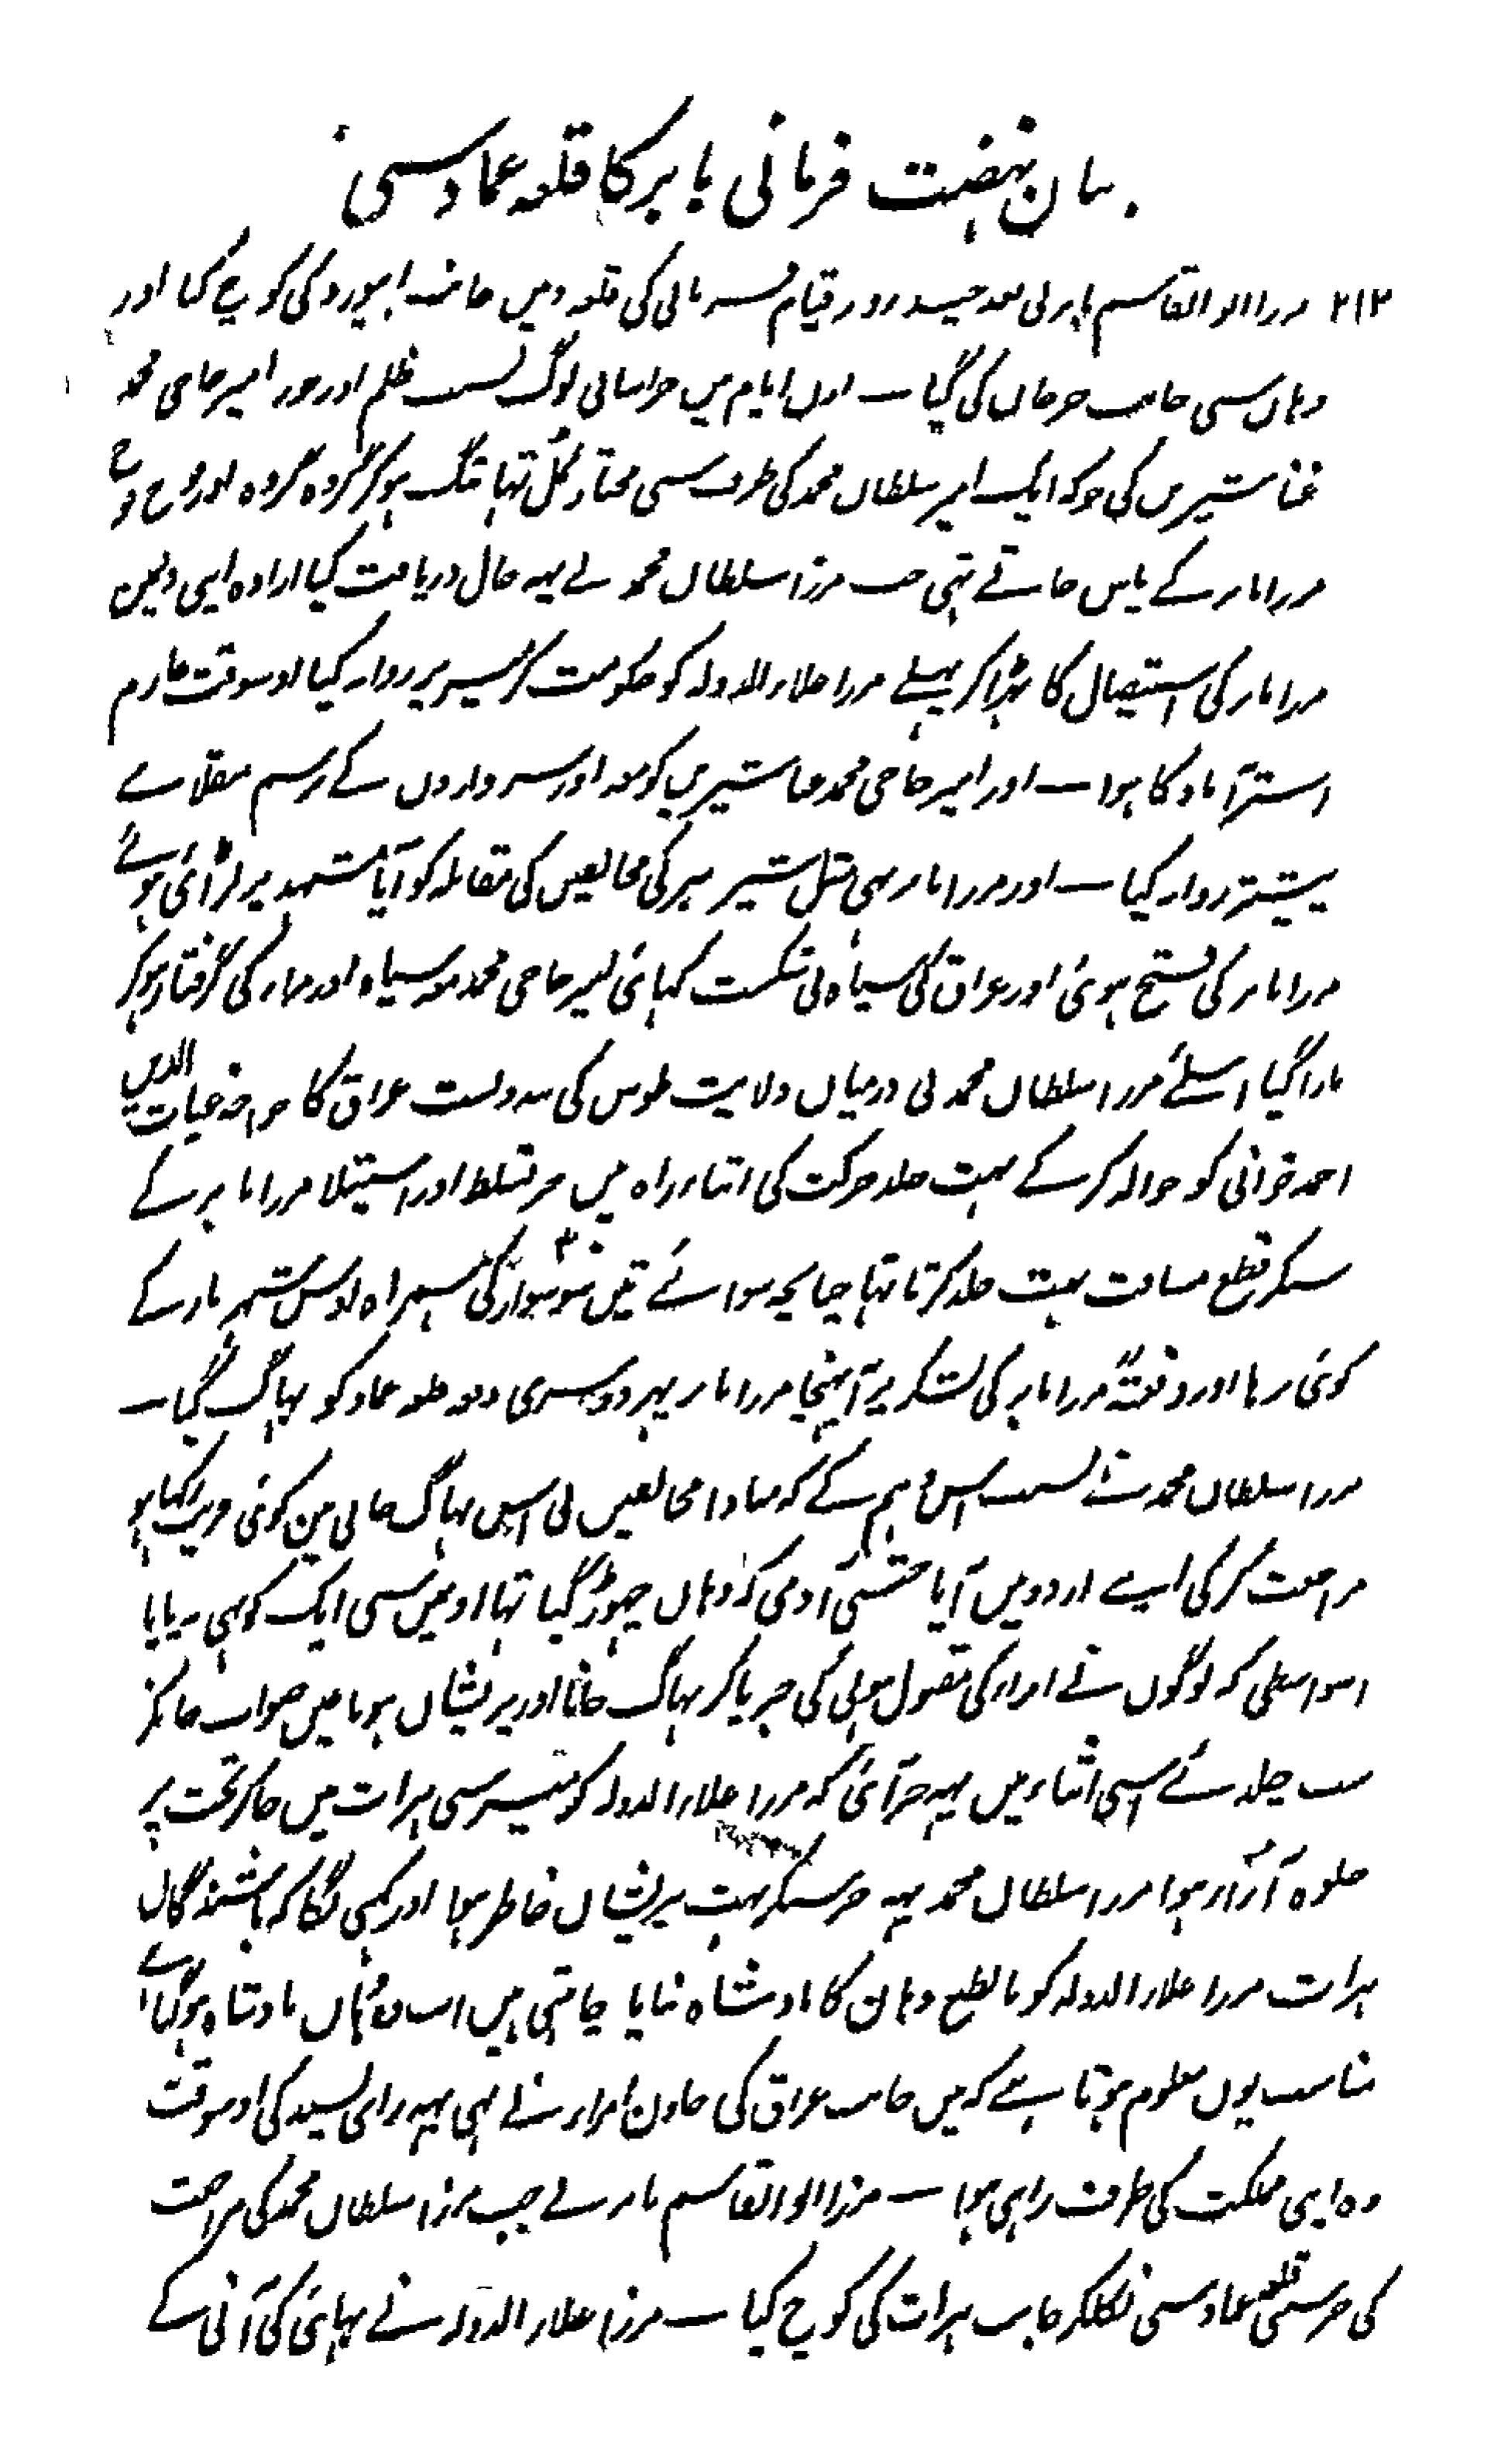 بیان نہضت فرمانی بابر کا قلعہ عماد سی
۲۱۲ مرزا ابو القاسم بابر نی بعد چند روز قیام فرمانی کی قلعہ میں جانب ابیورد کی کوچ کیا اور
وہاں سی جانب جرجان کی گیا ۔ اون ایام میں خراسانی لوگ بسبب ظلم اور جور امیر حاجی محمد
غناشیریں کی جو کہ ایک امیر سلطان محمد کی طرف سی مختار کل تہا تنگ ہو کر گروہ گروہ اور فوج فوج
مرزا بابر کے پاس جاتے تہی جب مرزا سلطان محمد نے یہہ حال دریافت کیا ارادہ اپنی دلمین
مرزا بابر کی استیصال کا ٹہرا کر پہلے مرزا علاء الدولہ کو حکومت گرمسیر پر روانہ کیا اوسوقت عازم
استرآباد کا ہوا ۔ اور امیر حاجی محمد غناشیریں کو معہ اور سرداروں کے برسم منقلاے
پیشتر روانہ کیا ۔ اور مرزا بابر بہی مثل شیر ببر کی مخالفین کی مقابلہ کو آیا مشہد پر لڑائی ہوئے
مرزا بابر کی فتح ہوئی اور عراق کی سپاہ نی شکست کہائی امیر حاجی محمد معہ سپاہ اور بہادر کی گرفتار ہو کر
مارا گیا اسلئے مرزا سلطان محمد نی درمیان ولایت طوس کی بندوبست عراق کا خواجہ غیاث الدین
احمد خوانی کو حوالہ کر کے بہت جلد حرکت کی اثناء راہ میں خبر تسلط اور استیلا مرزا بابر کے
سنکر قطع مسافت بہت جلد کرتا تہا چنانچہ سوائے تین سو سوار کی ہمراہ اوس شہریار کے
کوئی نرہا اور دفعۃً مرزا بابر کی لشکر پر آپہنچا مرزا بابر پہر دوسری دفعہ قلعہ عماد کو بہاگ گیا ۔
مرزا سلطان محمد نے بسبب اس وہم کے کہ مبادا مخالفین نی اس بہاگ جانی مین کوئی فریب رکہا ہو
مراجعت کر کی اپنے اردو میں آیا جتنی آدمی کہ وہاں چہوڑ گیا تہا اونمیں سی ایک کو بہی نپایا
اسواسطی کہ لوگوں نے امراء کی مقتول ہونی کی خبر پا کر بہاگ جانا اور پریشان ہونا عین صواب جانکر
سب چلدئے اسی اثناء میں یہہ خبر آئی کہ مرزا علاء الدولہ گرمسیر سی ہرات میں جا کر تخت پر
جلوہ آراء ہوا مرزا سلطان محمد یہہ خبر سنکر بہت پریشان خاطر ہوا اور کہنی لگا کہ باشندگان
ہرات مرزا علاء الدولہ کو بالطبع وہان کا بادشاہ بنایا چاہتی ہیں اب وہ وہاں بادشاہ ہو گیا ہے
مناسب یوں معلوم ہوتا ہے کہ میں جانب عراق کی جاون امراء نے بہی یہہ رای پسند کی اوسوقت
وہ اپنی مملکت کی طرف راہی ہوا ۔ مرزا ابو القاسم بابر نے جب مرزا سلطان محمد کی مراجعت
کی خبر سنی قلعہ عماد سی نکلکر جانب ہرات کی کوچ کیا ۔ مرزا علاء الدولہ نے بہائی کی آنی کے